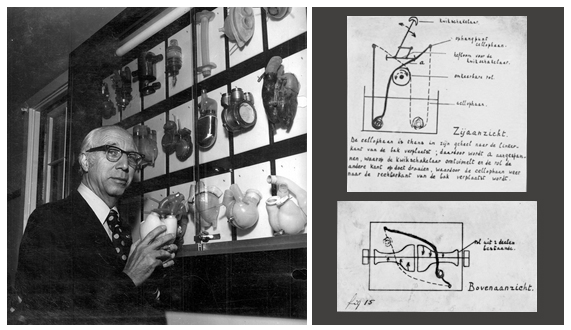 kwikschakelaar.
ophangpunt
cellophaan.
hefboom voor de
kwikschakelaar.
a
omkeerbare rol
cellophaan.
Zijaanzicht.
De cellophaan is thans in zijn geheel naar de linker-
kant van de bak verplaatst, daardoor wordt a aangespan-
nen, waarop de kwikschakelaar omtuimelt en de rol de
andere kant op doet draaien, waardoor de cellophaan weer
naar de rechterkant van de bak verplaatst wordt.
rol uit 2 deelen
bestaande.
Bovenaanzicht.
fig 15